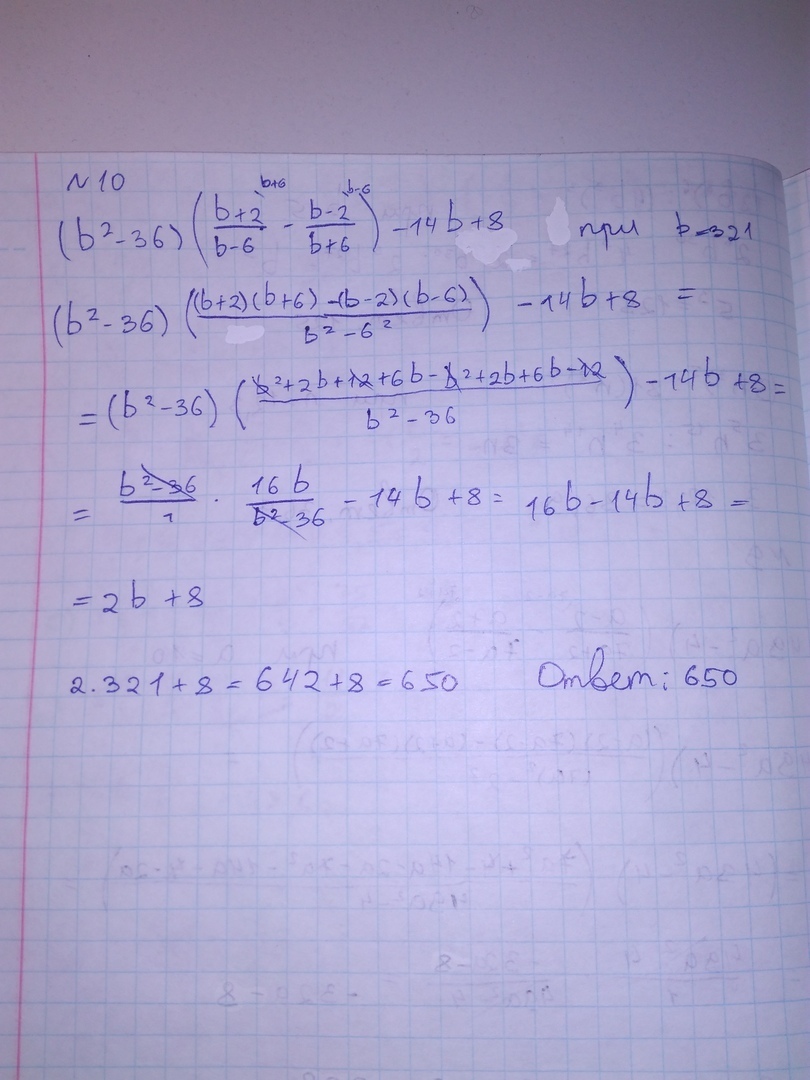 №10
(b²-36)((b+2)/(b-6) ^b+6 - (b-2)/(b+6) ^b-6) -14b+8 при b=321
(b²-36)(((b+2)(b+6)-(b-2)(b-6))/(b²-6²)) -14b+8 =
=(b²-36)((b²+2b+12+6b-b²+2b+6b-12)/(b²-36)) -14b+8=
= (b²-36)/1 · 16b/(b²-36) -14b+8= 16b-14b+8=
=2b+8
2·321+8=642+8=650 Ответ: 650